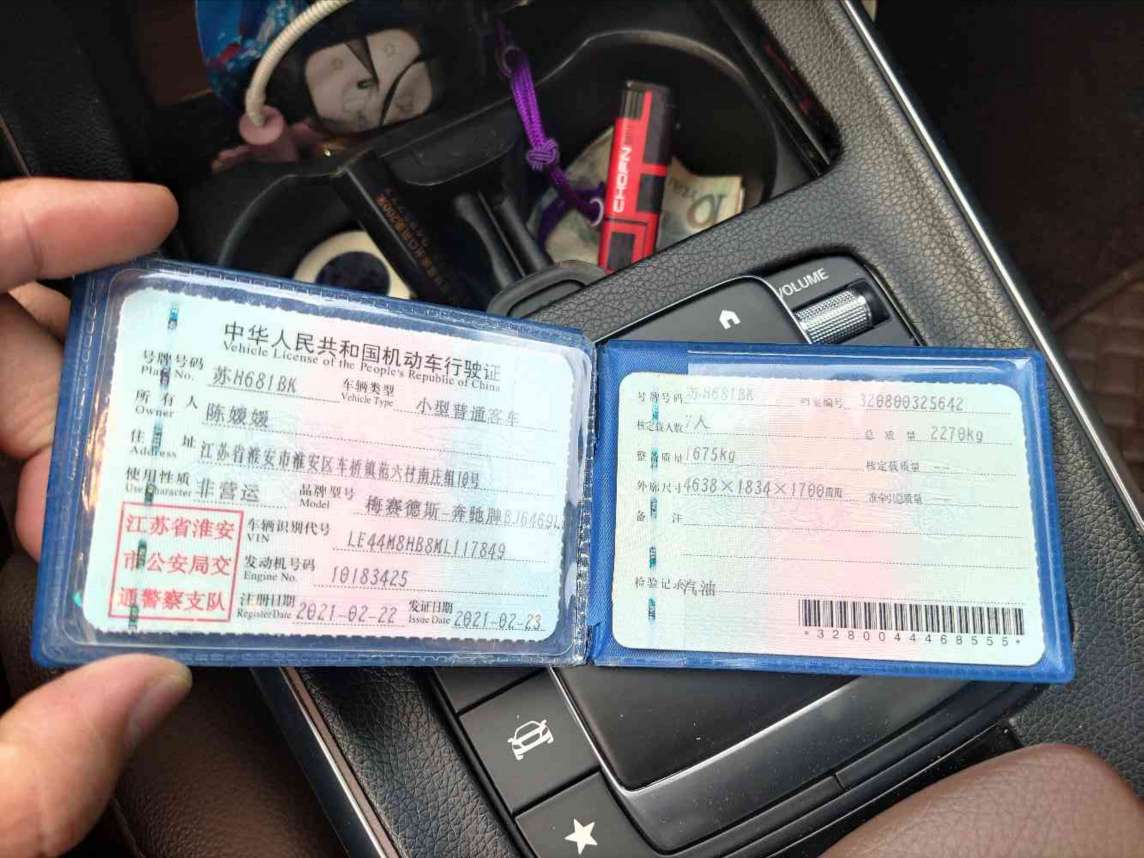 中华人民共和国机动车行驶证
Vehicle License of the People's Republic of China
号牌号码 苏H681BK 车辆类型 小型普通客车
Plate No. Vehicle Type
所有人 陈媛媛
Owner
住址 江苏省淮安市淮安区车桥镇 六村南庄组10号
Address
使用性质 非营运 品牌型号 梅赛德斯-奔驰牌BJ6469L
Use Character Model
江苏省淮安
市公安局交
通警察支队
车辆识别代号 LE44M8HB8ML117849
VIN
发动机号码 10183425
Engine No.
注册日期 2021-02-22 发证日期 2021-02-23
Register Date Issue Date
号牌号码 苏H681BK 档案编号 320800325642
核定载人数 7人 总质量 2270kg
整备质量 1675kg 核定载质量 --
外廓尺寸 4638×1834×1700mm 准牵引总质量 --
备注
检验记录 汽油
*3280044468555*
VOLUME
CHOPN
10